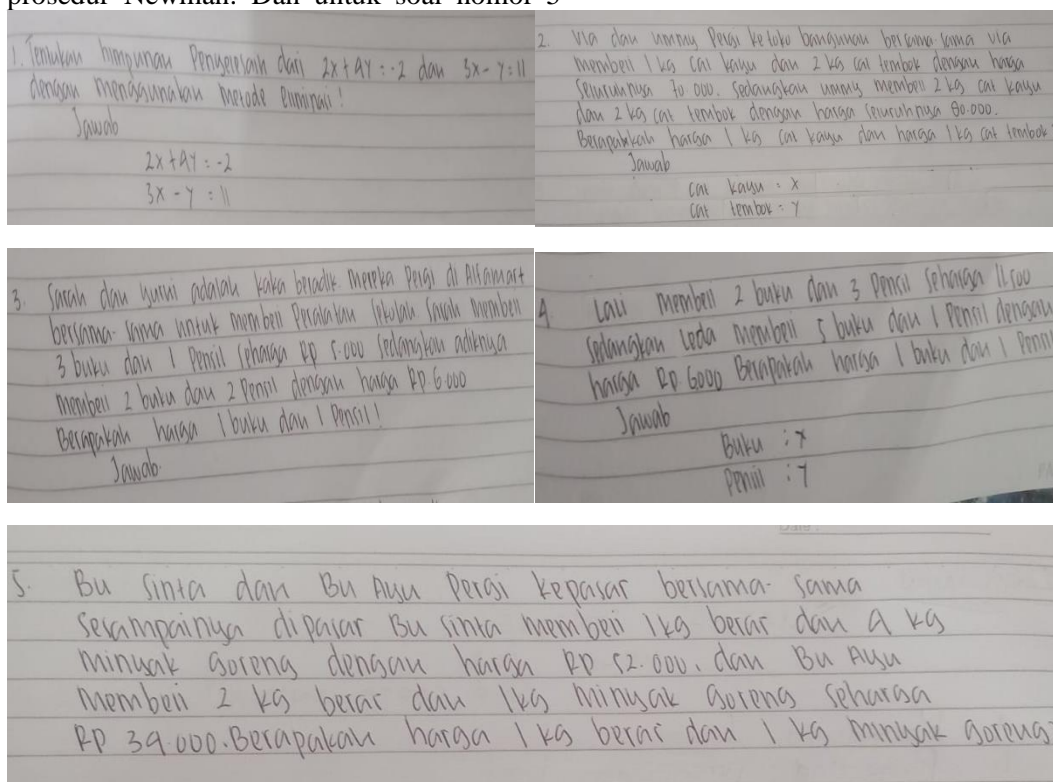 prosedur Newman. Dan untuk soal nomor 5
1. Tentukan himpunan Penyelesaian dari 2x+4y=-2 dan 3x-y=11
dengan menggunakan metode eliminasi!
Jawab
2x+4y=-2
3x-y=11
2. Via dan ummy Pergi ke toko bangunan bersama-sama via
membeli 1 kg cat kayu dan 2 kg cat tembok dengan harga
seluruhnya 70.000. Sedangkan ummy membeli 2 kg cat kayu
dan 2 kg cat tembok dengan harga seluruhnya 80.000.
Berapakah harga 1 kg cat kayu dan harga 1 kg cat tembok
Jawab
cat kayu = x
cat tembok = y
3. Sarah dan yurni adalah kaka beradik mereka Pergi di Alfamart
bersama-sama untuk membeli Peralatan Sekolah Sarah membeli
3 buku dan 1 Pensil seharga Rp 5.000 sedangkan adiknya
membeli 2 buku dan 2 Pensil dengan harga Rp.6.000
Berapakah harga 1 buku dan 1 Pensil!
Jawab.
4 Lali membeli 2 buku dan 3 Pensil seharga 11.500
sedangkan Loda membeli 5 buku dan 1 Pensil dengan
harga Rp 6000 Berapakah harga 1 buku dan 1 Pensil
Jawab
Buku : x
Pensil : y
5. Bu Sinta dan Bu Ayu Pergi kepasar bersama-sama
Sesampainya dipasar Bu Sinta membeli 1kg beras dan 4 kg
minyak goreng dengan harga RP 52.000. dan Bu Ayu
membeli 2 kg beras dan 1kg minyak goreng seharga
RP 34.000. Berapakah harga 1 kg beras dan 1 kg minyak goreng